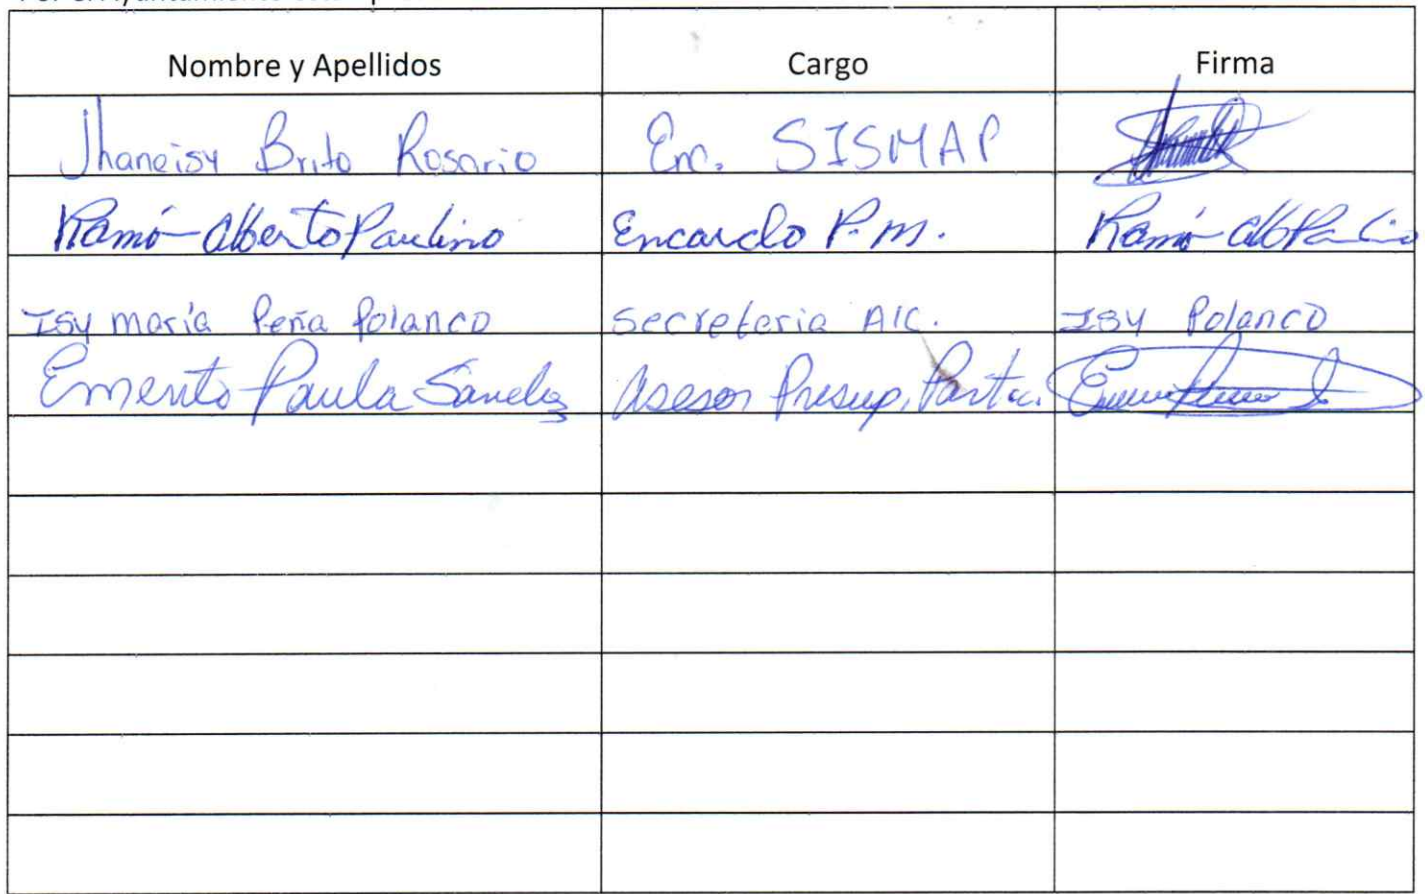 Nombre y Apellidos Cargo Firma
Jhaneisy Brito Rosario Enc. SISMAP
Ramó Alberto Paulino Encardo P.M. Ramó Alb Paulino
Isy maría Peña Polanco secretaria A/C. Isy Polanco
Emerito Paula Sánchez Asesor Presup. Partic.